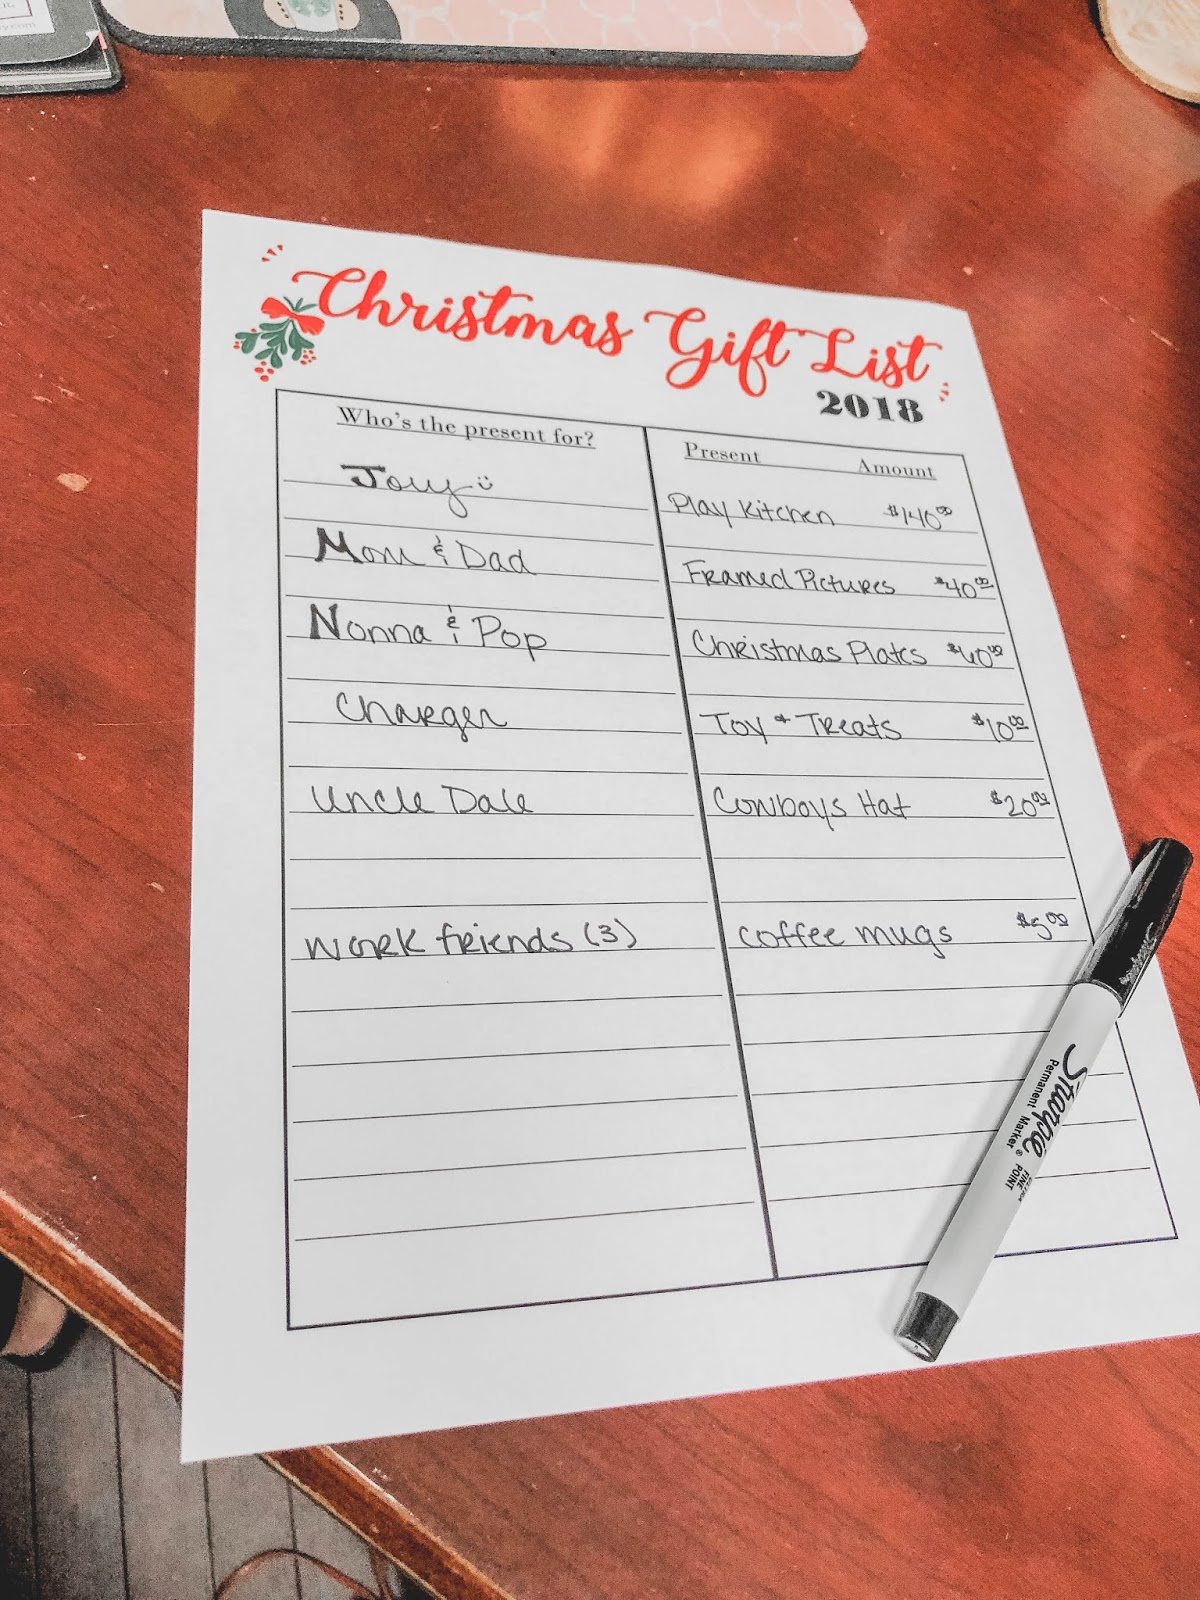 Christmas Gift List
2018
Who's the present for?
Present Amount
Joey
Play Kitchen $140.00
Mom & Dad
Framed Pictures $40.00
Nonna & Pop
Christmas Plates $40.00
Charger
Toy + Treats $10.00
Uncle Dale
Cowboys Hat $20.00
work friends (3)
coffee mugs $5.00
Sharpie
Permanent Marker ®
ULTRA
FINE
POINT
Sharpie